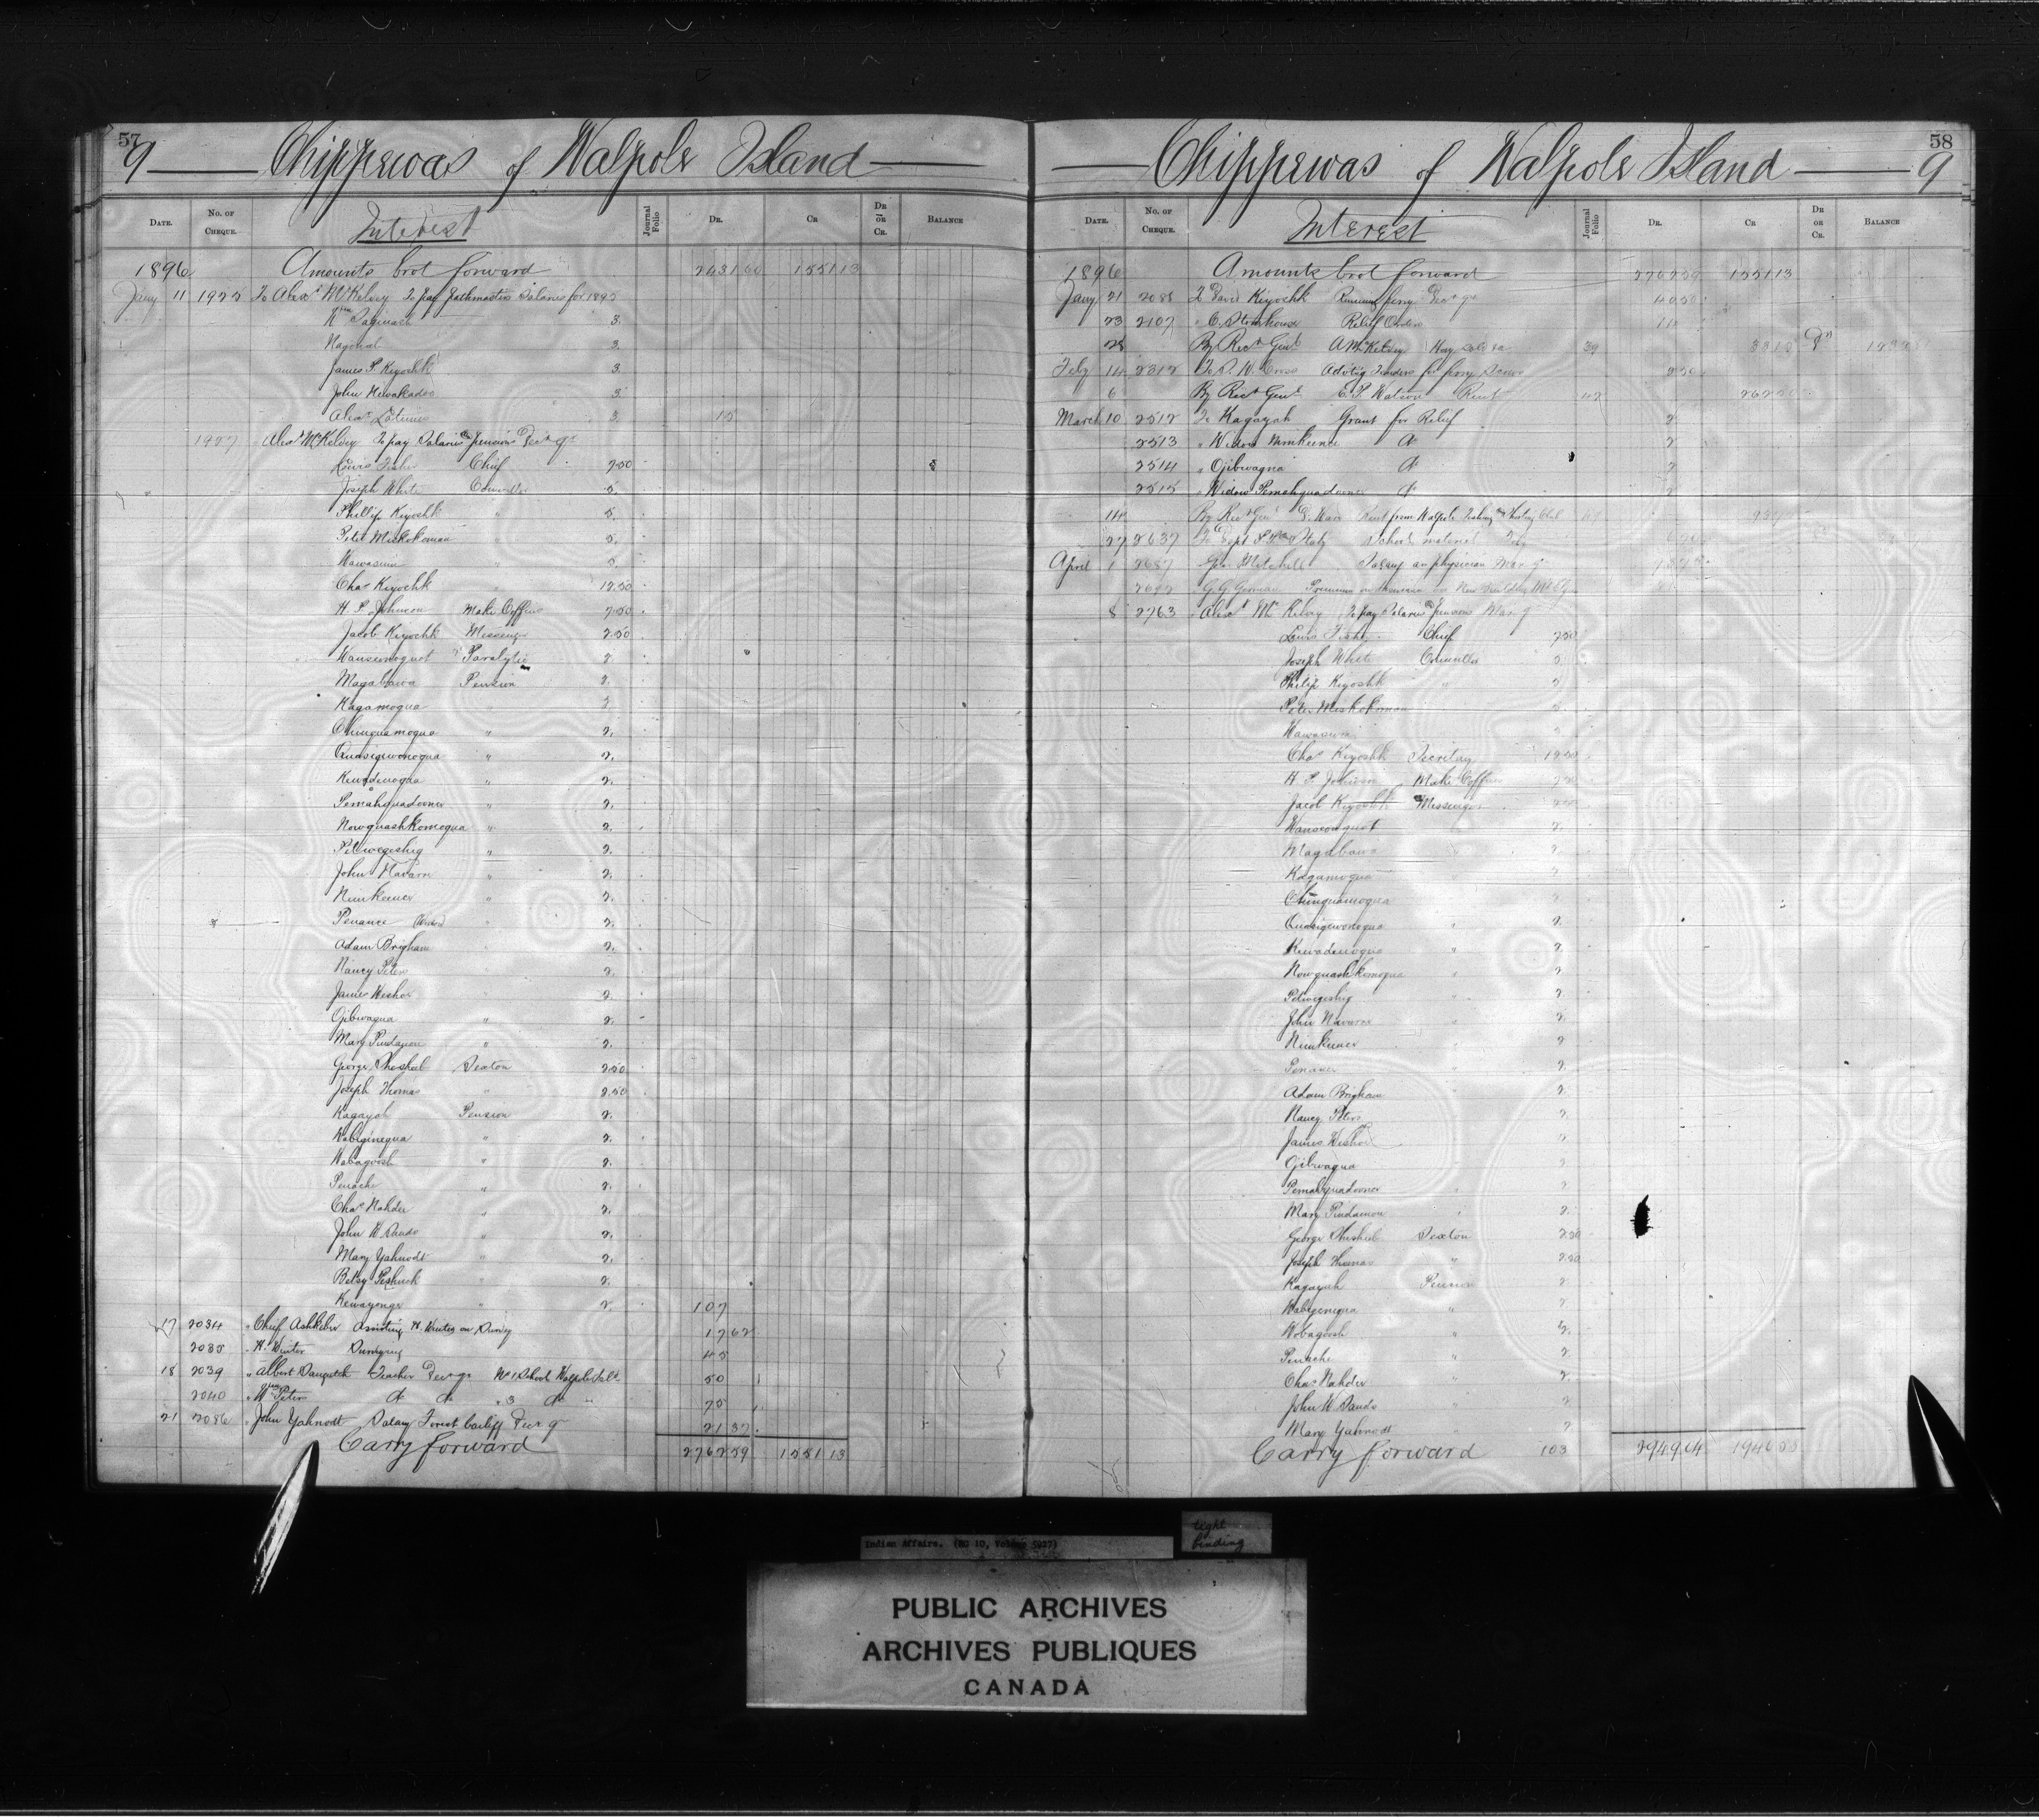 57
9 Chippewas of Walpole Island
DATE. No. OF CHEQUE. Interest Journal Folio DR. CR DR OR CR. BALANCE
1896 Amounts brot forward 2431 60 1551 13
Jany 11 1925 To Alexr McKelvey To pay Pathmasters Salaries for 1895
Wm Saginash 3.
Nagonal 3
James P. Kiyoshk 3
John 3
Alexr 3. 15
1927 Alexr McKelvey To pay Salaries & Pensions Decr qr
Louis Fisher Chief 7.50
Joseph White Councillor 5.
Phillip Kiyoshk " 5.
Peter Miskokoman " 5.
Wawasum " 5.
Chas Kiyoshk 12.50
H. P. Johnson Make Coffins 2.50
Jacob Kiyoshk Messenger 2.50
Wanseonoquot Paralytic 2.
Magabawa Pension 2.
Kagamoqua "
Chinguamoqua " 2.
Quasigewonoqua " 2.
Kewadenoqua " 2.
Pemahquadoonce " 2.
Nowquashkomoqua " 2.
Petwegeshig " 2.
John Navarre " 2.
Nimkeence " 2.
Penance (Widow) " 2.
Adam Brigham 2.
Nancy Peters 2.
James Weshor 2.
Ojibwaqua " 2.
Mary Pindamon " 2.
George Sexton 2.50
Joseph Thomas " 2.50
Kagayah Pension 2.
Wabigenequa " 2.
Wabagoosh " 2.
Penache " 2.
Chas Nahdee " 2.
John W Sands " 2.
Mary Yahnodt " 2.
Betsy Peshuck " 2.
Kewayonge " 2. 107
17 2034 " Chief Ashkebee Assisting W. Winter on Survey 17 62
2035 " W. Winter Surveying 45
18 2039 " Albert Teacher Decr qr No 1 School Walpole Isld 50
2040 " Wm Peters do do " 3 do " 75
21 2086 " John Yahnodt Salary Forest bailiff Decr q 21 37
Carry forward 2762 59 1551 13
58
Chippewas of Walpole Island 9
DATE. No. OF CHEQUE. Interest Journal Folio DR. CR DR OR CR. BALANCE
1896 Amounts brot forward 2762 59 1551 13
Jany 21 2088 To David Kiyoshk Running ferry Decr qr 40 50
23 2107 " C. Stonehouse Relief Orders 11
28 By Recr Genl A McKelvey Hay 39
Feby 14 2312 To Cross Advtg Tenders for ferry 2 50
6 By Recr Genl E. P. Watson Rent 42
March 10 2512 To Kagayah Grant for Relief 2
2513 " Widow Nimkeence do 2
2514 " Ojibwaqua do 2
2515 " Widow Pemahquadoonce do 2
14 By Recr Genl Rent from Walpole Fishing & Hunting Club
27 2637 To Dept P. P. & Staty School material Feby
April 1 2687 Geo. Mitchell Salary as physician Mar q
G. G. Gorman Premium on Insurance on New Building
8 2763 Alexr McKelvey To pay Salaries & Pensions Mar q
Louis Fisher Chief 7.50
Joseph White Councillor 5
Philip Kiyoshk " 5
Peter Miskokoman 5
Wawasum
Chas Kiyoshk Secretary 12.50
H. P. Johnson Make Coffins 2.50
Jacob Kiyoshk Messenger 2.50
Wanseonquot 2.
Magabawa 2.
Kagamoqua 2
Chinguamoqua
Quasigewonoqua " 2.
Kewadenoqua " 2.
Nowquashkomoqua " 2.
Petwegeshig " 2
John Navarre " 2
Nimkeence " 2
Penance " 2.
Adam Brigham " 2.
Nancy Peters 2.
James Weshor 2
Ojibwaqua 2.
Pemahquadoonce " 2
Mary Pindamon " 2.
George Sexton 2.50
Joseph Thomas " 2.50
Kagayah Pension 2
Wabigenequa " 2
Wobagoosh " 2.
Penache " 2.
Chas Nahdee " 2.
John W Sands " 2
Mary Yahnodt " 2
Carry forward 103 2949 64 1946 55
Indian Affairs. (RG 10, Volume 5927)
tight
binding
PUBLIC ARCHIVES
ARCHIVES PUBLIQUES
CANADA